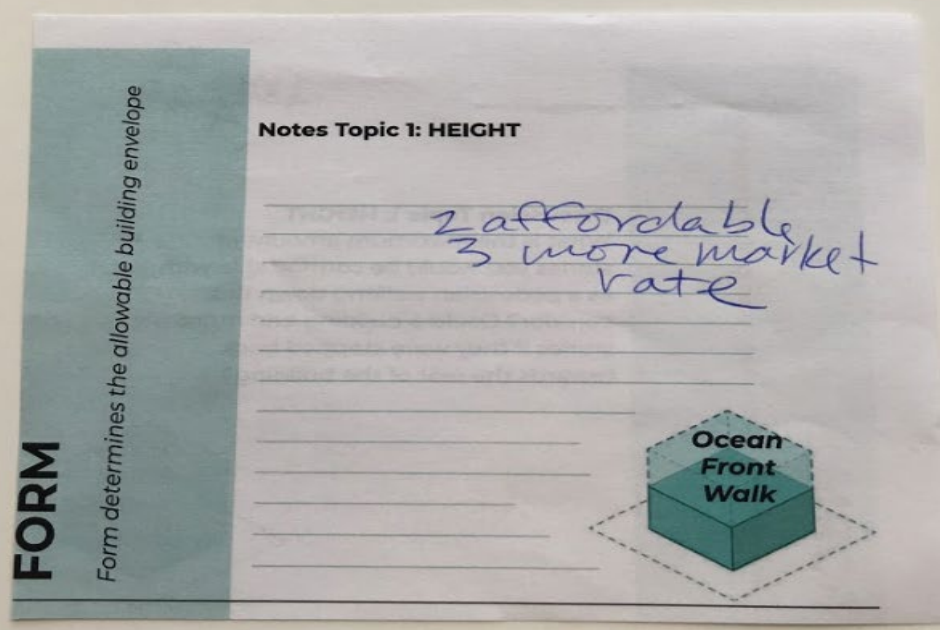 FORM
Form determines the allowable building envelope
Notes Topic 1: HEIGHT
2 affordable
3 more market
rate
Ocean
Front
Walk